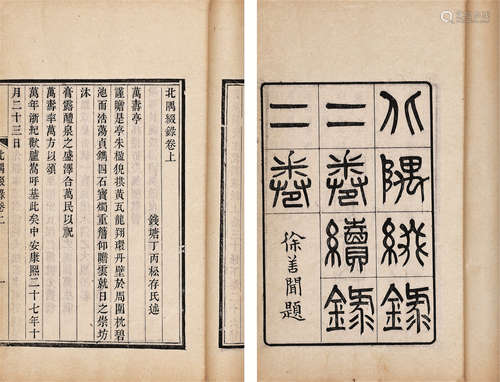 北隅綴錄
二卷續錄
二卷
徐善聞題
北隅綴錄卷上
錢塘丁丙松存氏述
萬壽亭
謹瞻是亭朱楹猊拱黃瓦龍翔環丹壁於周圍枕碧
池而浩蕩貞鐫四石寶燭重簷仰瞻雲就日之崇坊
沐
膏露醴泉之盛澤合萬民以祝
萬壽率萬方以頌
萬年浙紀歡臚嵩呼基此矣中安康熙二十七年十
月二十三日
北隅綴錄卷上
一